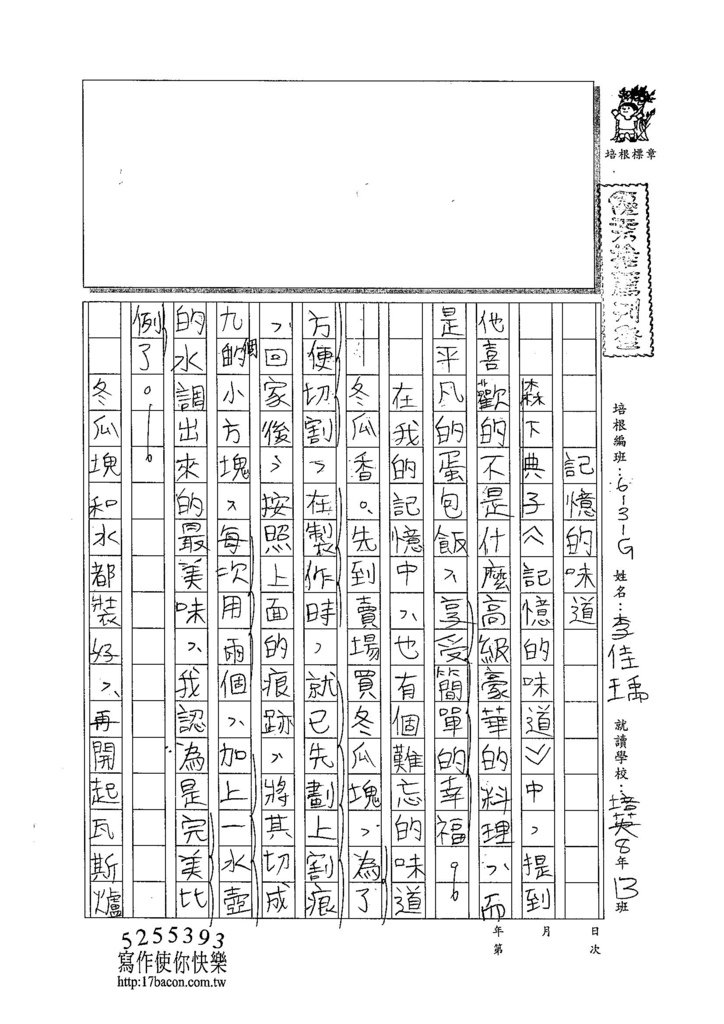 培根標章
優秀推薦刊登
培根編班:6-31-G 姓名:李佳瑀 就讀學校:培英8年13班
記憶的味道
森下典子《記憶的味道》中,提到
他喜歡的不是什麼高級豪華的料理,而
是平凡的蛋包飯,享受簡單的幸福。
在我的記憶中,也有個難忘的味道
—冬瓜香。先到賣場買冬瓜塊,為了
方便切割,在製作時,就已先劃上割痕
,回家後,按照上面的痕跡,將其切成
九個的小方塊,每次用兩個,加上一水壺
的水調出來的最美味,我認為是完美比
例了。
冬瓜塊和水都裝好,再開起瓦斯爐
年 月 日
第 次
5255393
寫作使你快樂
http:17bacon.com.tw